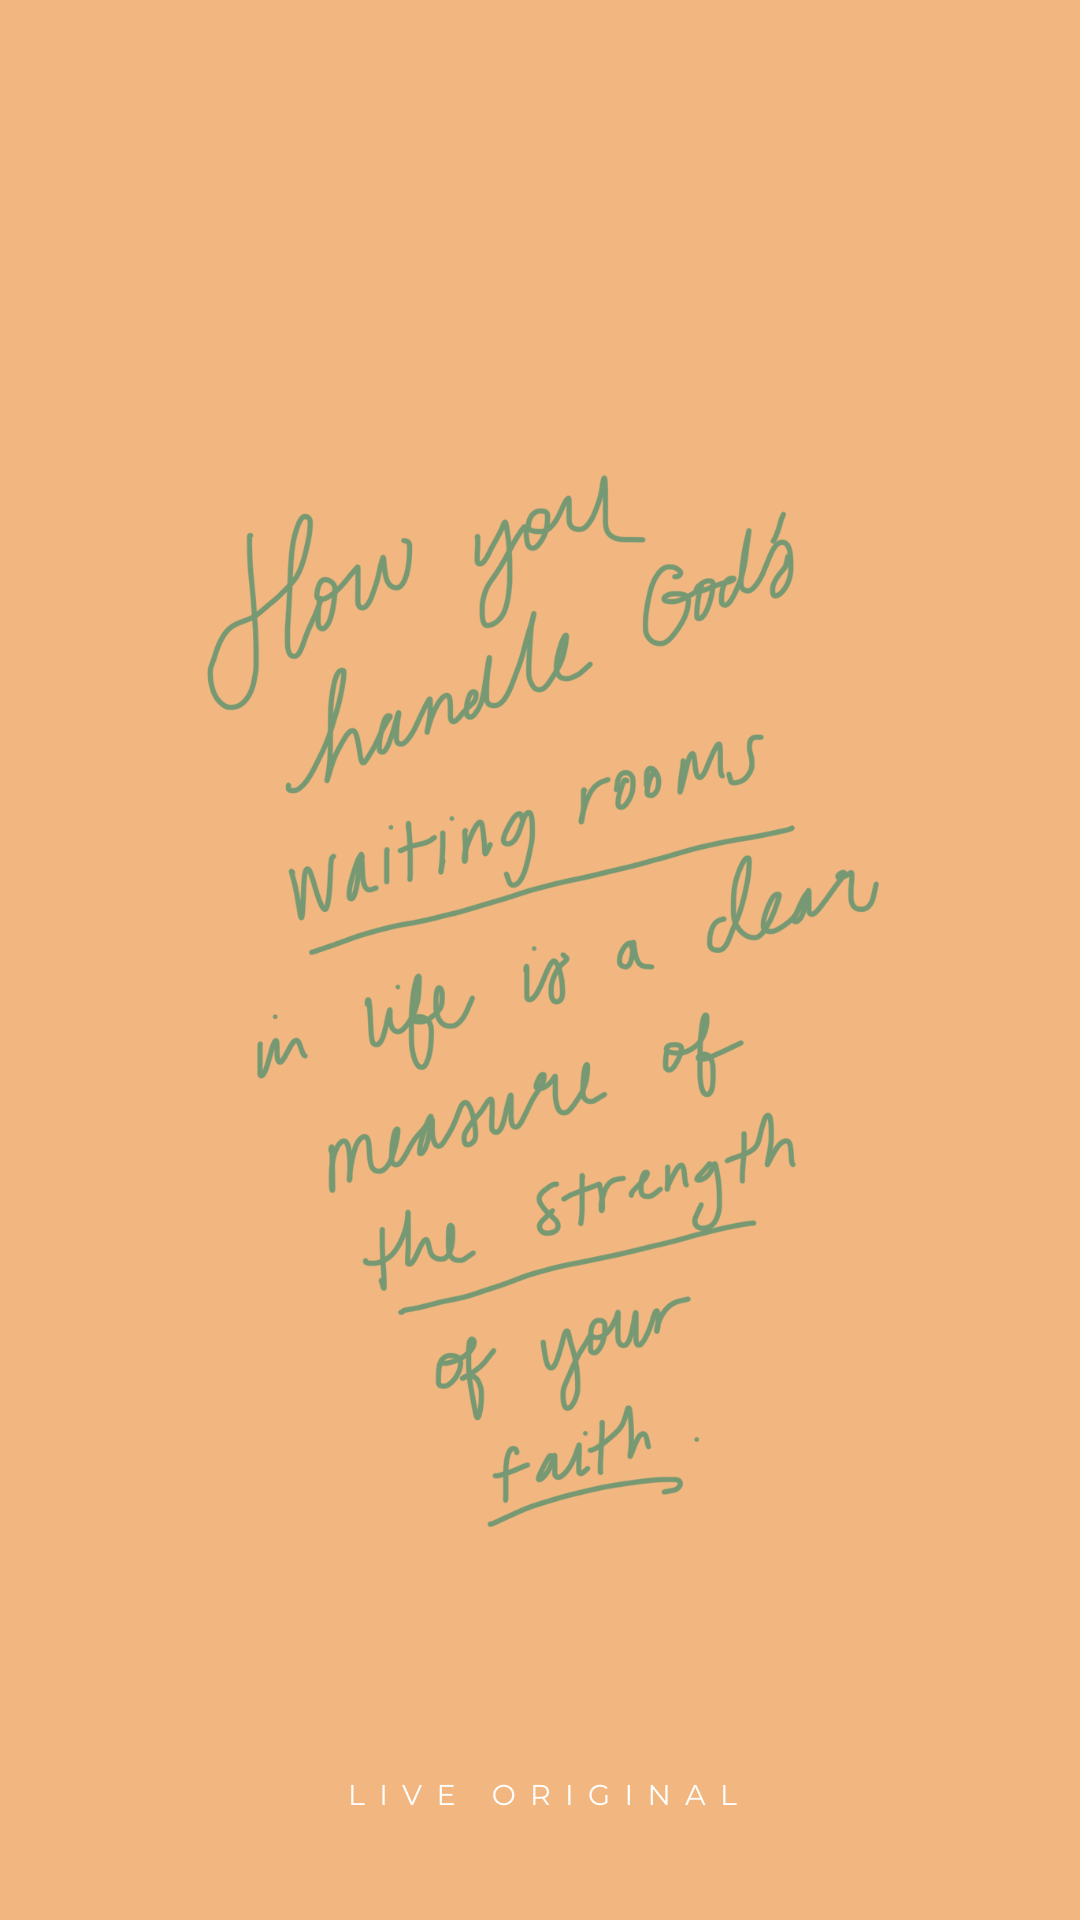 How you
handle God's
waiting rooms
in life is a clear
measure of
the strength
of your
faith.
LIVE ORIGINAL